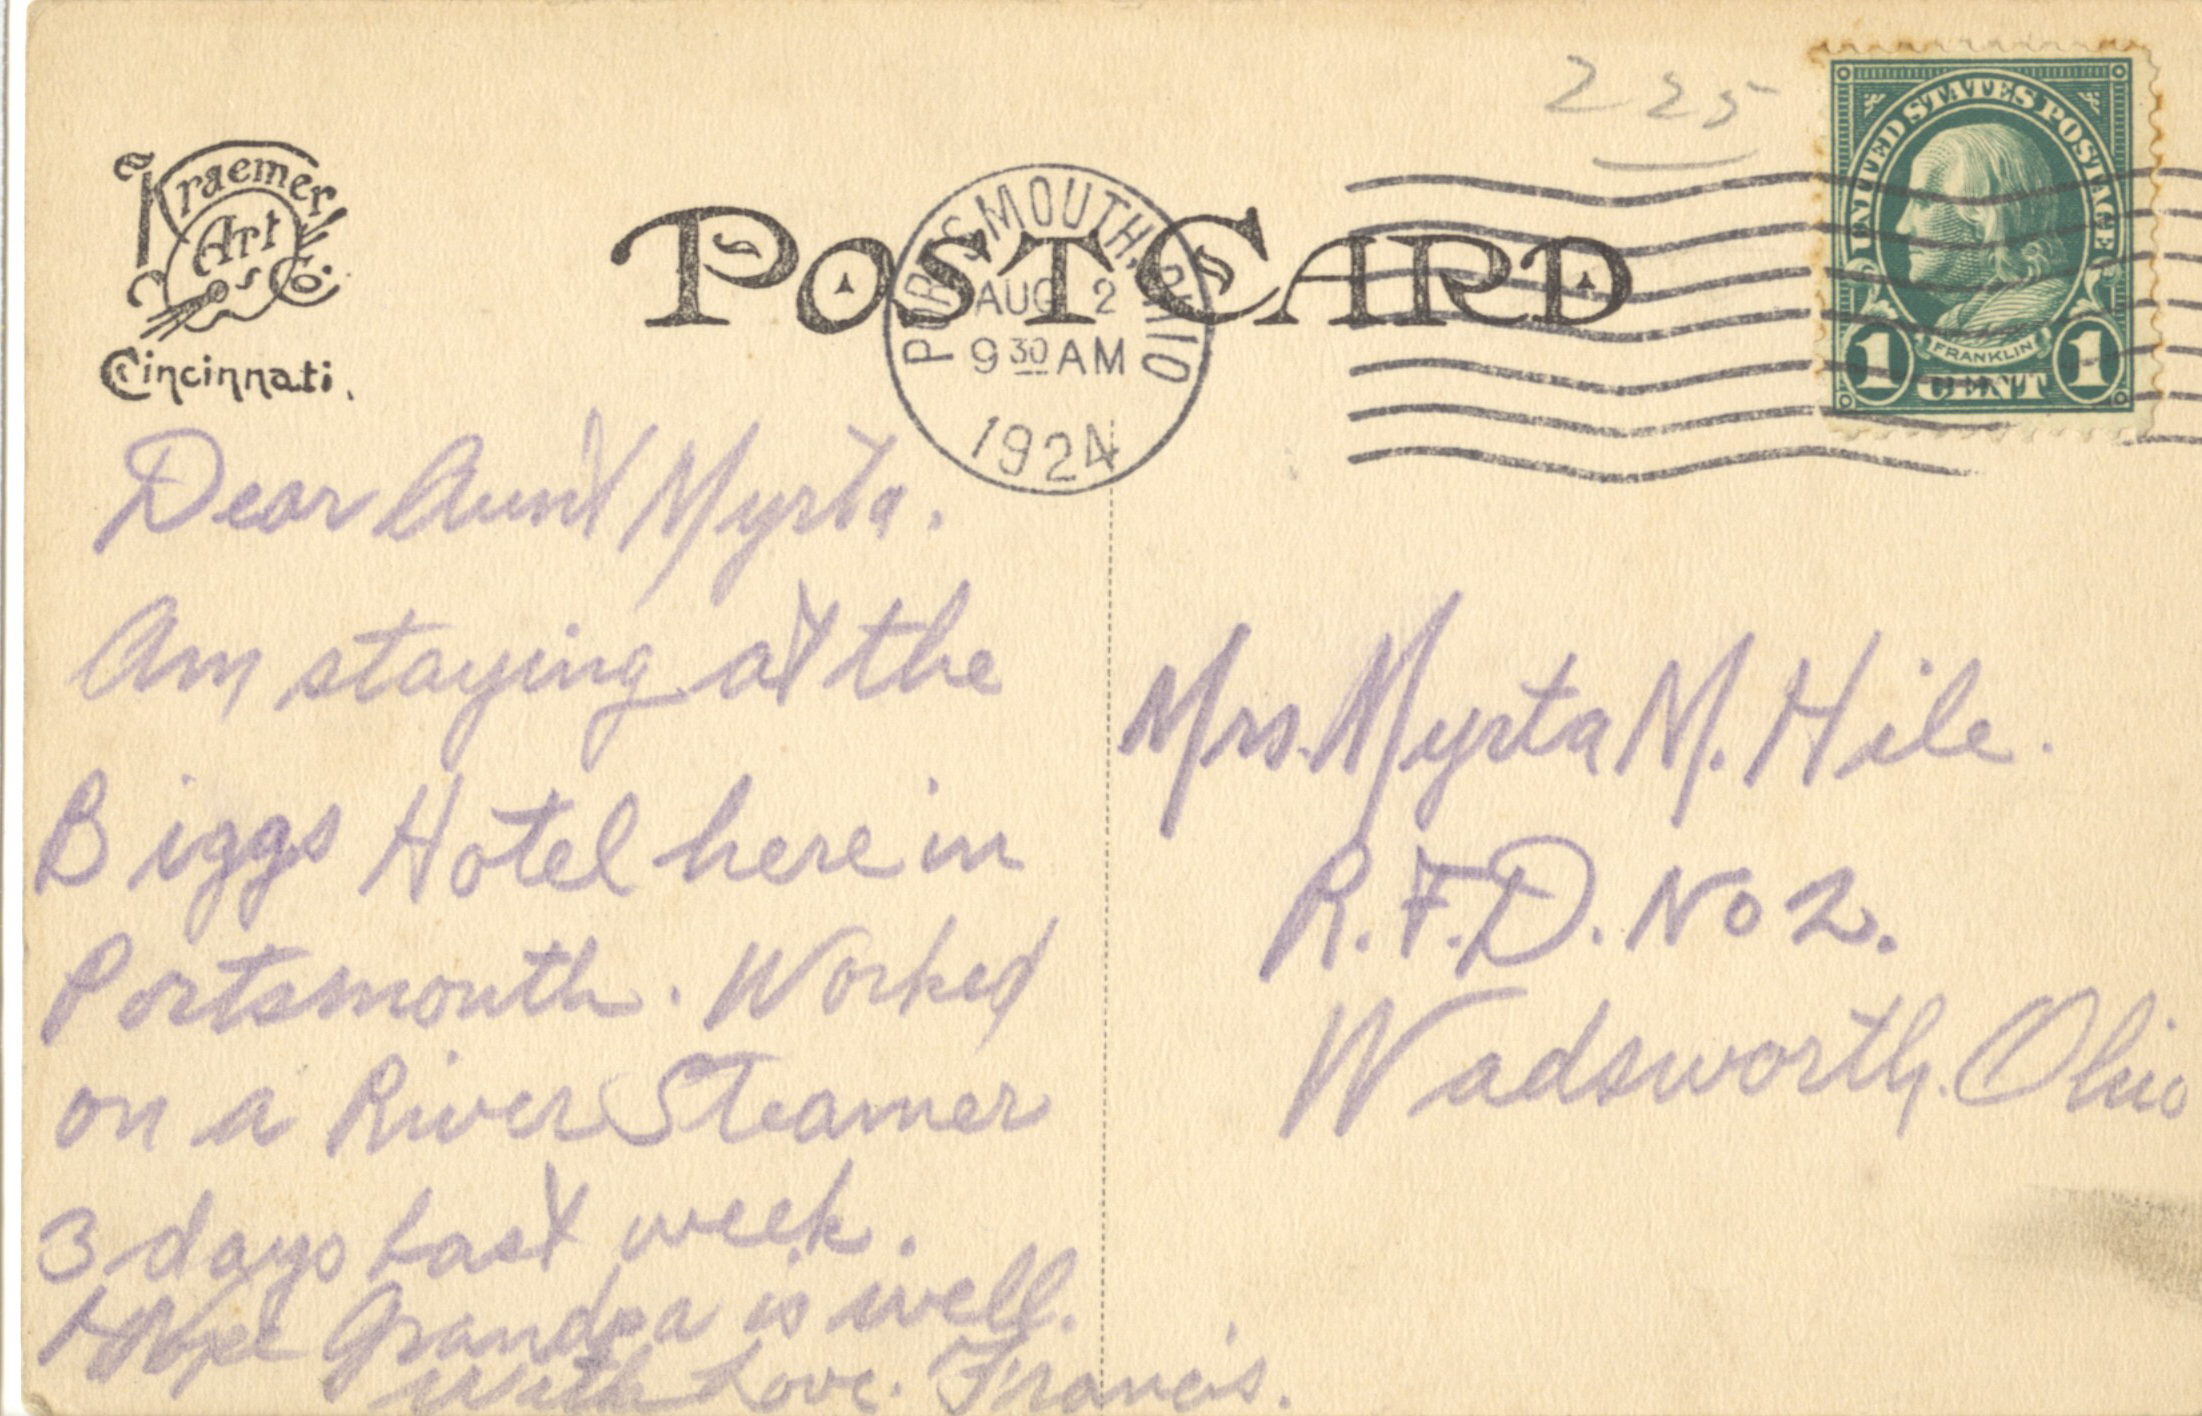 Kraemer
Art
Co.
Cincinnati.
POST CARD
PORTSMOUTH, OHIO
AUG 2
9 30 AM
1924
225
UNITED STATES POSTAGE
FRANKLIN
1 CENT 1
Dear Aunt Myrta.
Am staying at the
Biggs Hotel here in
Portsmouth. Worked
on a River Steamer
3 days last week.
Hope Grandpa is well.
With Love. Francis.
Mrs. Myrta M. Hile.
R.F.D. No 2.
Wadsworth, Ohio